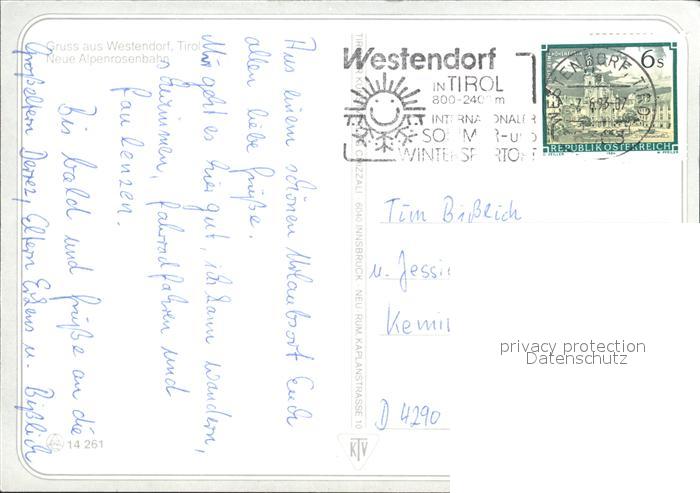 Gruss aus Westendorf, Tirol
Neue Alpenrosenbahn
Aus einem schönen Urlaubsort Euch
allen liebe Grüße.
Mir geht es hier gut, ich kann wandern,
schwimmen, fahrradfahren und
faulenzen.
Bis bald und Grüße an die
Großeltern Eltern u. Bißlich
14 261
TIROLER KUNSTVERLAG CHIZZALI 6040 INNSBRUCK NEU RUM, KAPLANSTRASSE 10
KTV
Westendorf
IN TIROL
800-2400 m
INTERNATIONALER
SOMMER- UND
WINTERSPORTORT
WESTENDORF T
6 S
REPUBLIK ÖSTERREICH
Tim Bißlich
u. Jessi
Kemi
D 4290
privacy protection
Datenschutz